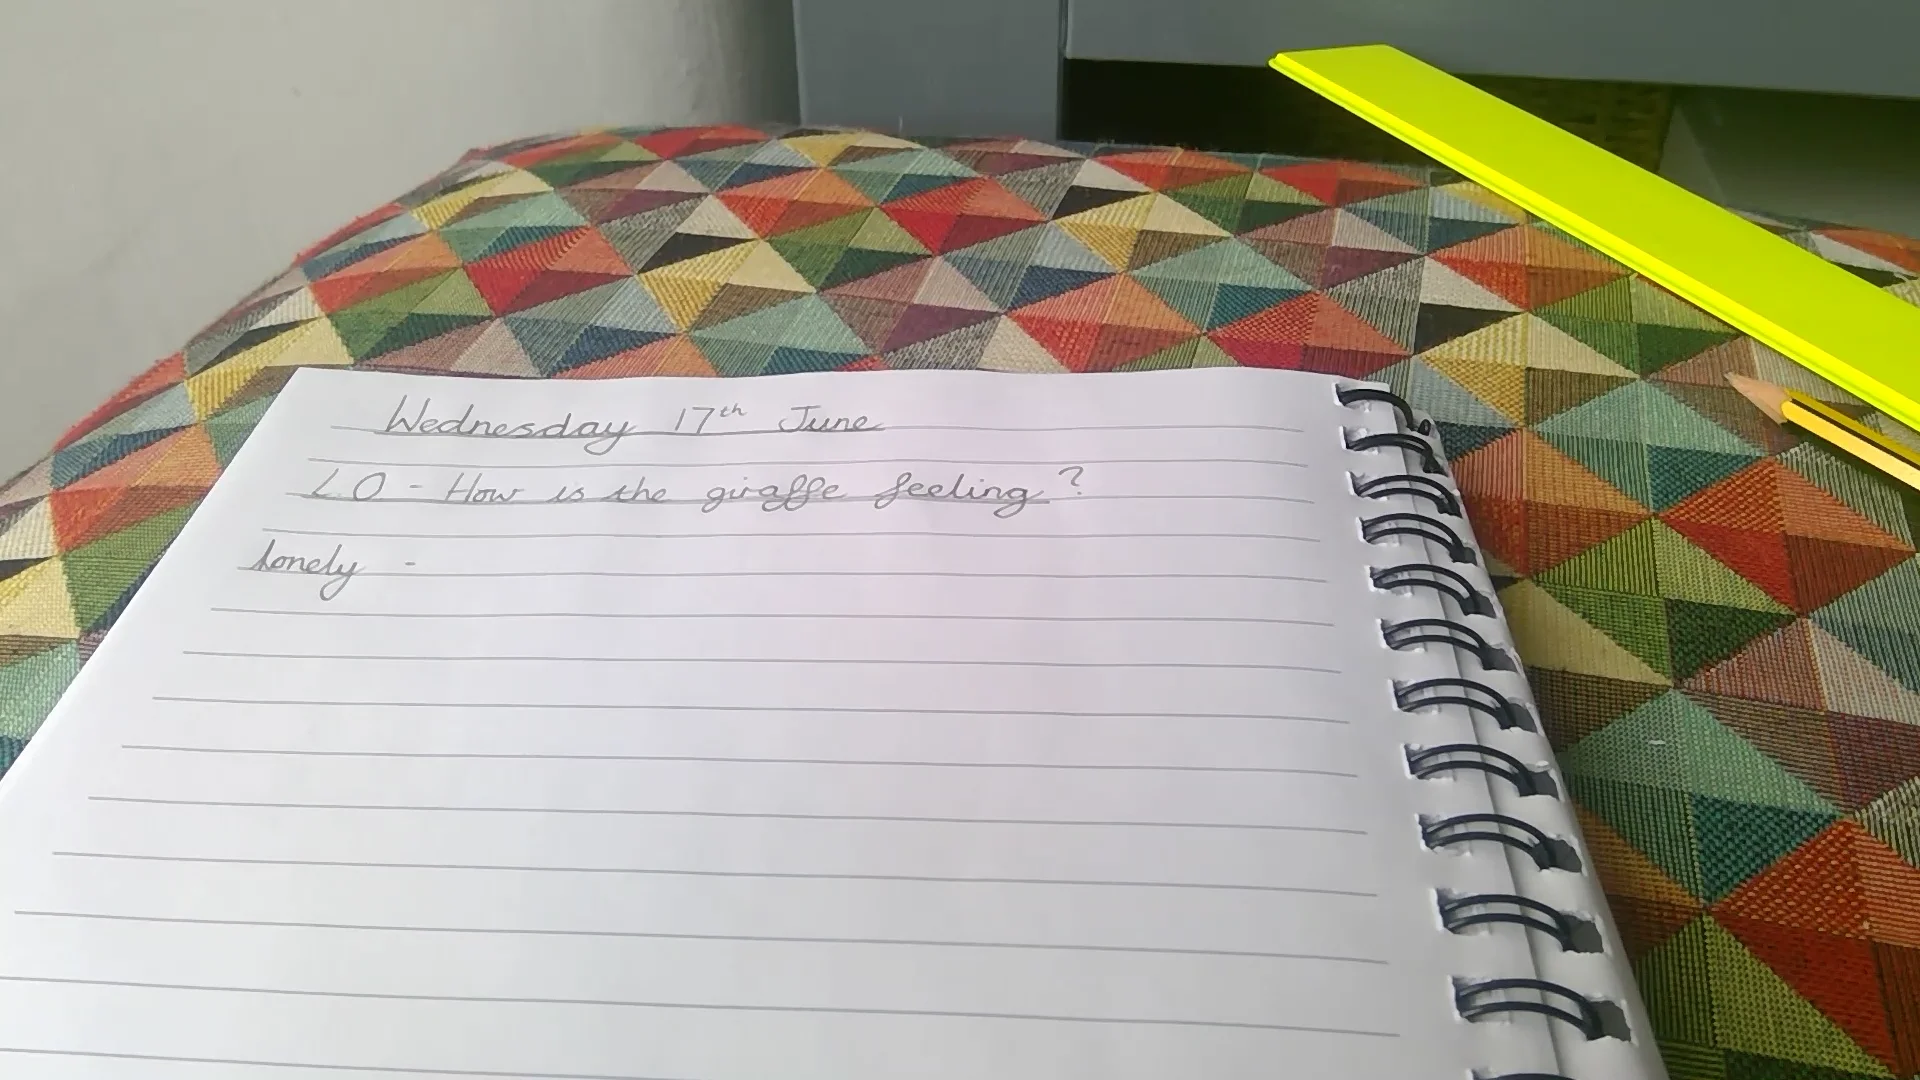 Wednesday 17th June
LO - How is the giraffe feeling?
lonely -